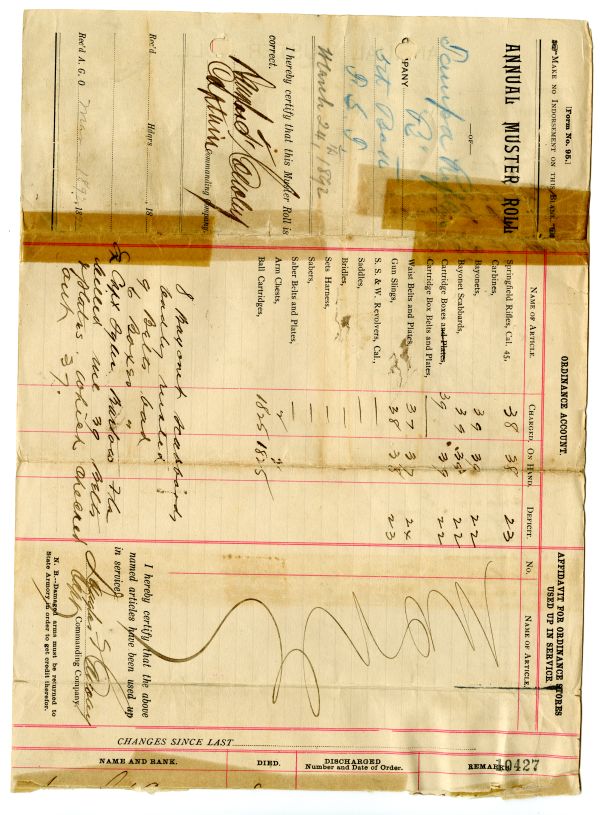 [Form No. 95.]
MAKE NO INDORSEMENT ON THIS BLANK
ANNUAL MUSTER ROLL
—OF—
Tampa Rifles
COMPANY
3d Batt
March 24th, 1892
I hereby certify that this Muster Roll is
correct.
Captain Commanding Company.
Rec'd Hdqrs 18
Rec'd A. G. O. 1892, 18
ORDINANCE ACCOUNT.
NAME OF ARTICLE. CHARGED. ON HAND. DEFICIT.
Springfield Rifles, Cal. 45, 38 38 23
Carbines,
Bayonets, 39 39 22
Bayonet Scabbards, 39 38 22
Cartridge Boxes and Plates, 39 39 22
Cartridge Box Belts and Plates, —
Waist Belts and Plates, 37 37 24
Gun Slings, 38 38 23
S. S. & W. Revolvers, Cal., —
Saddles, —
Bridles, —
Sets Harness, —
Sabers, —
Saber Belts and Plates, —
Arm Chests, 2 2
Ball Cartridges, 1825 1825
8 Bayonet Scabbards
badly rusted
9 Belts bad
6 Boxes "
Ex Capx
issued me 39 Belts
& Plates which checked
out 37.
AFFIDAVIT FOR ORDINANCE STORES
USED UP IN SERVICE.
No. NAME OF ARTICLE.
I hereby certify that the above
named articles have been used up
in service.
Capt Commanding Company.
N. B.—Damaged arms must be returned to
State Armory, in order to get credit therefor.
CHANGES SINCE LAST
NAME AND RANK. DIED. DISCHARGED REMARKS
Number and Date of Order.
10427